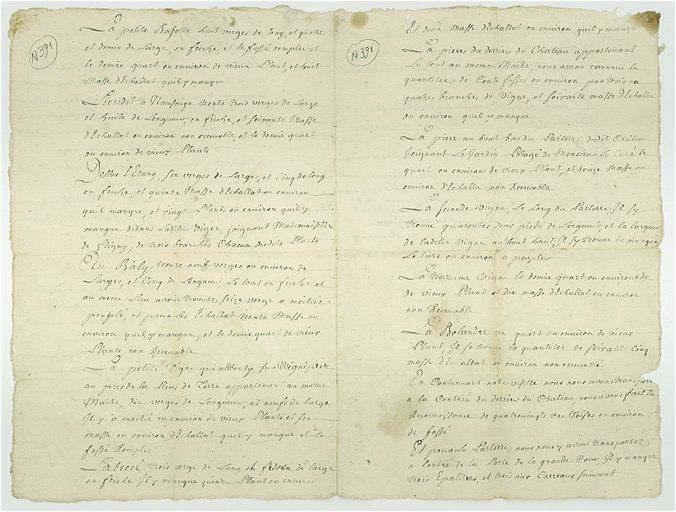 N 391
La petite Bajolle huit verges de long, et quatre
et demie de Large, en friche, et le fossé remplie et
le demie quart ou environ de vieux Plant, et huit
Masse d'Echallat quil y manque
trente trois verges de Large
et huite de Longueur, en friche, et soixante Masse
d'Echallat ou environ non recevable, et le demie quart
ou environ de vieux Plants
Dessus l'Etang, six verges de Larges, et Cinq de long
en friche, et quinze Masse d'Echallat ou environ
quil manque, et vingt Plants ou environ quil y
manque dedans Laditte Vigne, joignant Mademoiselle
de fligny, de trois branches Chacun desdits Plants
Au Bâly trente neuf verges ou environ de
Larges, et Cinq de Longueur; Le tout en friche et
au meme Lieu avoir trouvé, seize verge a moitier
peuplé, et pour Les Echallat trente Masse ou
environ quil y manque, et le demie quart de vieux
Plants non Recevable
La petitte Vigne qui
au pres de la Piece de Terre appartenant au meme
Maître, dix verges de Longueur, et neuf de large
Il y a moitié ou environ de vieux Plants et six
masse ou environ d'Echallat quil y manque et Le
fossé Remplie
trois verge de Long et de large
en friche Il y manque quinze Plant ou environ
N 391
Et deux Masse d'Echallat ou environ quil y manque
La pieces du derrier du Chateau appartenant
Le tout au meme Maitre, nous avons reconnue la
quantitée de Cents fosses ou environ par trois ou
quatre branches de Vigne, et soixante masse d'Echallat
ou environ quil y manque
La piece au bout bas du Parterre dudit Château
Joignant Le Jardin de Monsieur Le Curé le
quart ou environ de vieux Plant, et douze Masse ou
environ d'Echallat non Recevable
La seconde Vigne Le Long du Parterre Il s'y
trouve quarentes deux pieds de Longueur, et la largeur
de Ladette Vigne au bout haut, Il s'y trouve de manque
Le tiers ou environ a peupler
La troizieme Vigne le demie quart ou environ de
de vieux Plant et dix masse d'Echallat ou environ
non Recevable
La Bolandre un quart ou environ de vieux
Plant, Il se trouve la quantitée de soixant Cinq
masse d'Echallat ou environ non recevable
En Continuant notre visitte nous nous avons transporté
a la Contrée du derrier du Chateau, nous avons fait la
Reconnoissance de quatrevingts une Toises ou environ
de fossé
Et pour Le Parterre nous nous y avons transportez
a l'entré de la Porte de la grande Cour, Il y manque
trois Epalliers, et trois aux Carreaux suivant